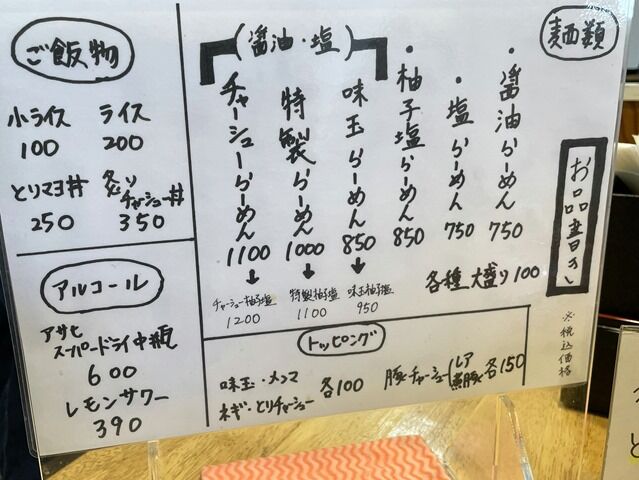 お品書き
※税込価格
麺類
・醤油らーめん 750
・塩らーめん 750
・柚子塩らーめん 850
(醤油・塩)
味玉らーめん 850
特製らーめん 1000
チャーシューらーめん 1100
味玉柚子塩 950
特製柚子塩 1100
チャーシュー柚子塩 1200
各種大盛り100
トッピング
味玉・メンマ
ネギ・とりチャーシュー 各100
豚チャーシュー(レア 煮豚 各150
ご飯物
小ライス 100
ライス 200
とりマヨ丼 250
炙りチャーシュー丼 350
アルコール
アサヒ
スーパードライ中瓶
600
レモンサワー
390